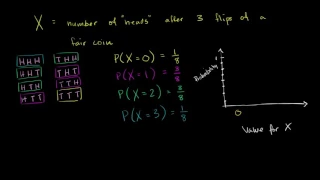 X = number of "heads" after 3 flips of a
fair coin
HHH THH
HHT THT
HTH TTH
HTT TTT
P(X=0) = 1/8
P(X=1) = 3/8
P(X=2) = 3/8
P(X=3) = 1/8
Probability
1
0
Value for X